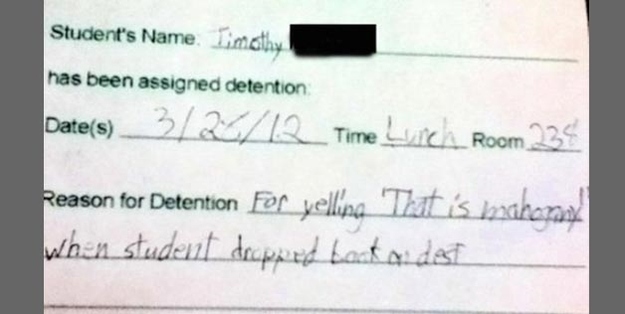 Student's Name: Timothy
has been assigned detention:
Date(s) 3/26/12 Time Lunch Room 238
Reason for Detention For yelling "That is mahogany"
when student dropped book on desk